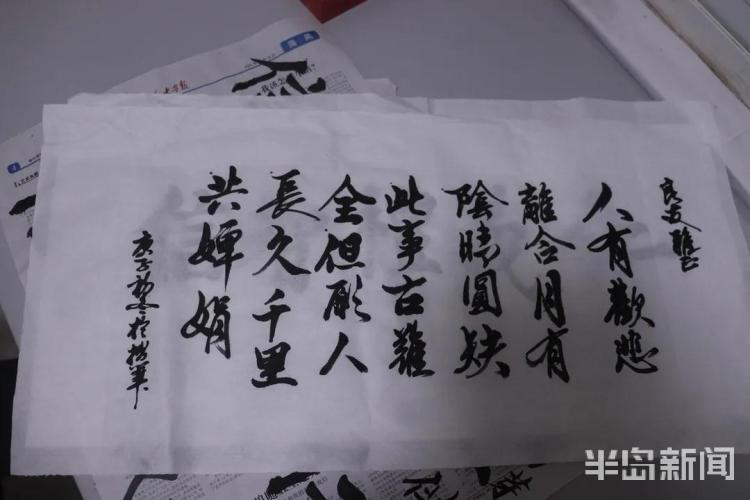 良友雅正
人有歡悲
離合月有
陰晴圓缺
此事古難
全但願人
長久千里
共嬋娟
庚子初冬於
半岛新闻